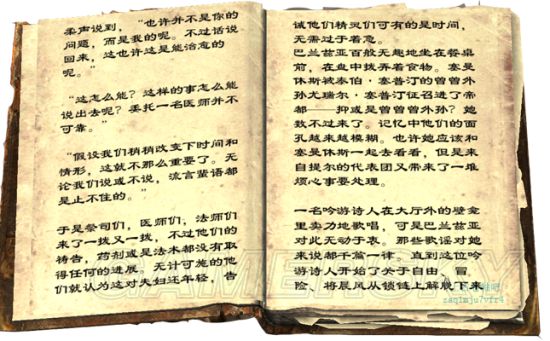 柔声说到，“也许并不是你的
问题，而是我的呢。不过话说
回来，这也许这是能治愈的
呢。”
“这怎么能？这样的事怎么能
说出去呢？委托一名医师并不
可靠。”
“假设我们稍稍改变下时间和
情形，这就不那么重要了。无
论我们说或不说，流言蜚语都
是止不住的。”
于是祭司们，医师们，法师们
来了一拨又一拨，不过他们的
祷告，药剂或是法术都没有取
得任何的进展。无计可施的他
们就认为这对夫妇还年轻，告
诫他们精灵们可有的是时间，
无需过于着急。
巴兰兹亚百般无趣地坐在餐桌
前，在盘中拨弄着食物。塞曼
休斯被泰伯·塞普汀的曾曾外
孙尤瑞尔·塞普汀征召进了帝
都——抑或是曾曾曾外孙？她
数不过来了。记忆中他们的面
孔越来越模糊。也许她应该和
塞曼休斯一起去看看，但是来
自提尔的代表团又带来了一堆
烦心事要处理。
一名吟游诗人在大厅外的壁龛
里卖力地歌唱，可是巴兰兹亚
对此无动于衷。那些歌谣对她
来说都千篇一律。直到这位吟
游诗人开始了关于自由、冒
险、将晨风从锁链上解脱下来
GAMERSKY
zaq1mju7vfr4